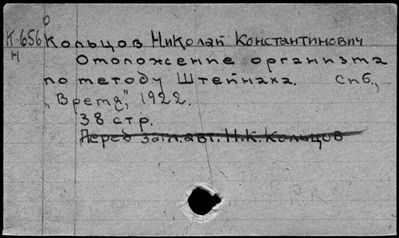 К.656 Кольцов Николай Константинович
н Омоложение организма
по методу Штейнаха. Спб.,
"Время", 1922.
38 стр.
Перед заглав. Н.К.Кольцов